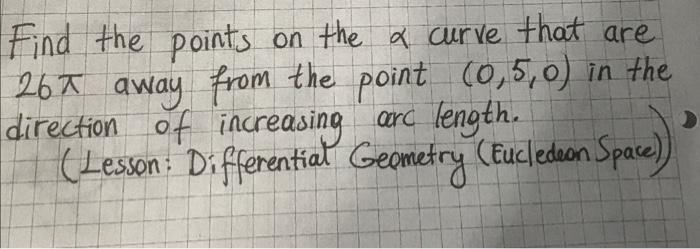 Find the points on the α curve that are
26π away from the point (0,5,0) in the
direction of increasing arc length.
(Lesson: Differential Geometry (Eucledean Space))